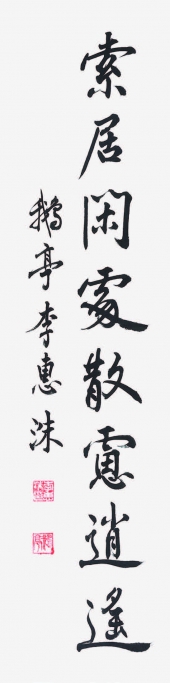 索居閑處散慮逍遙
鵝亭李惠沫